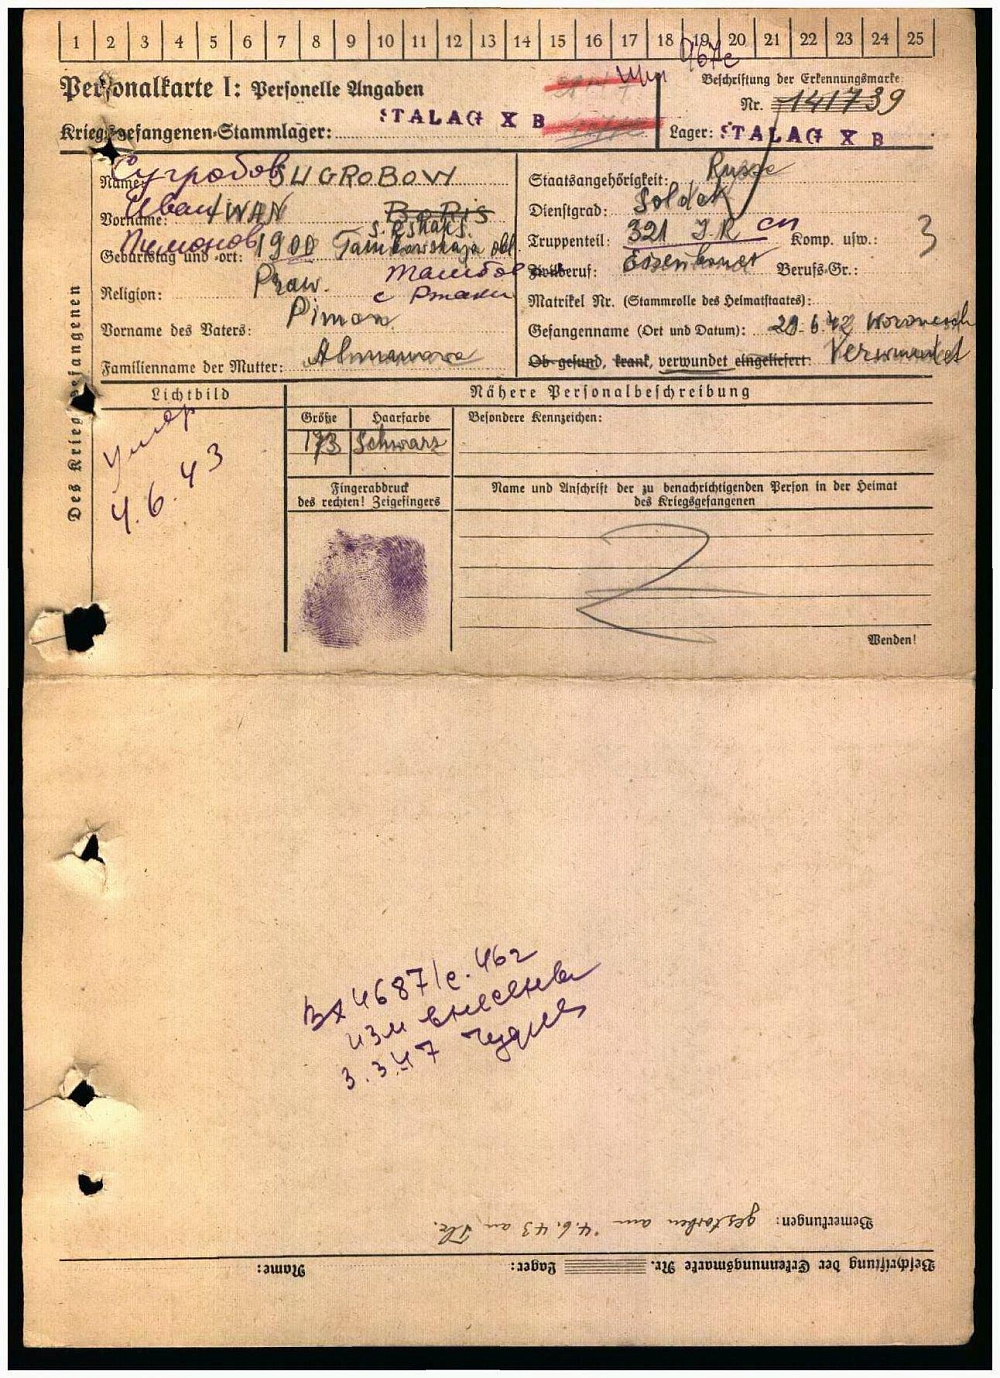 1 2 3 4 5 6 7 8 9 10 11 12 13 14 15 16 17 18 19 20 21 22 23 24 25
Personalkarte I: Personelle Angaben
Kriegsgefangenen-Stammlager: STALAG X B
Beschriftung der Erkennungsmarke
Nr. 141739
Lager: STALAG X B
Des Kriegsgefangenen
Сугробов
Name: SUGROBOW
Иван
Vorname: IWAN Boris
Пимонович
Geburtstag und -ort: 1900 Tambowskaja obl.
Тамбов
Religion: Praw.
с Ржакс
Vorname des Vaters: Piman
Familienname der Mutter:
Staatsangehörigkeit: Russe
Dienstgrad: Soldat
Truppenteil: 321 J.R сп Komp. usw.: 3
Zivilberuf: Eisenbauer Berufs-Gr.:
Matrikel Nr. (Stammrolle des Heimatstaates):
Gefangenname (Ort und Datum): 29.6.42 Woronesch
Ob gesund, krank, verwundet eingeliefert: Verwundet
Lichtbild
умер
4.6.43
Nähere Personalbeschreibung
Größe Haarfarbe Besondere Kennzeichen:
173 Schwarz
Fingerabdruck
des rechten! Zeigefingers
Name und Anschrift der zu benachrichtigenden Person in der Heimat
des Kriegsgefangenen
Wenden!
Вх 4687/с. 46г
изм внесены
3.3.47
Bemerkungen: gestorben am 4.6.43 an Tbc.
Beschriftung der Erkennungsmarke Nr. Lager: Name: